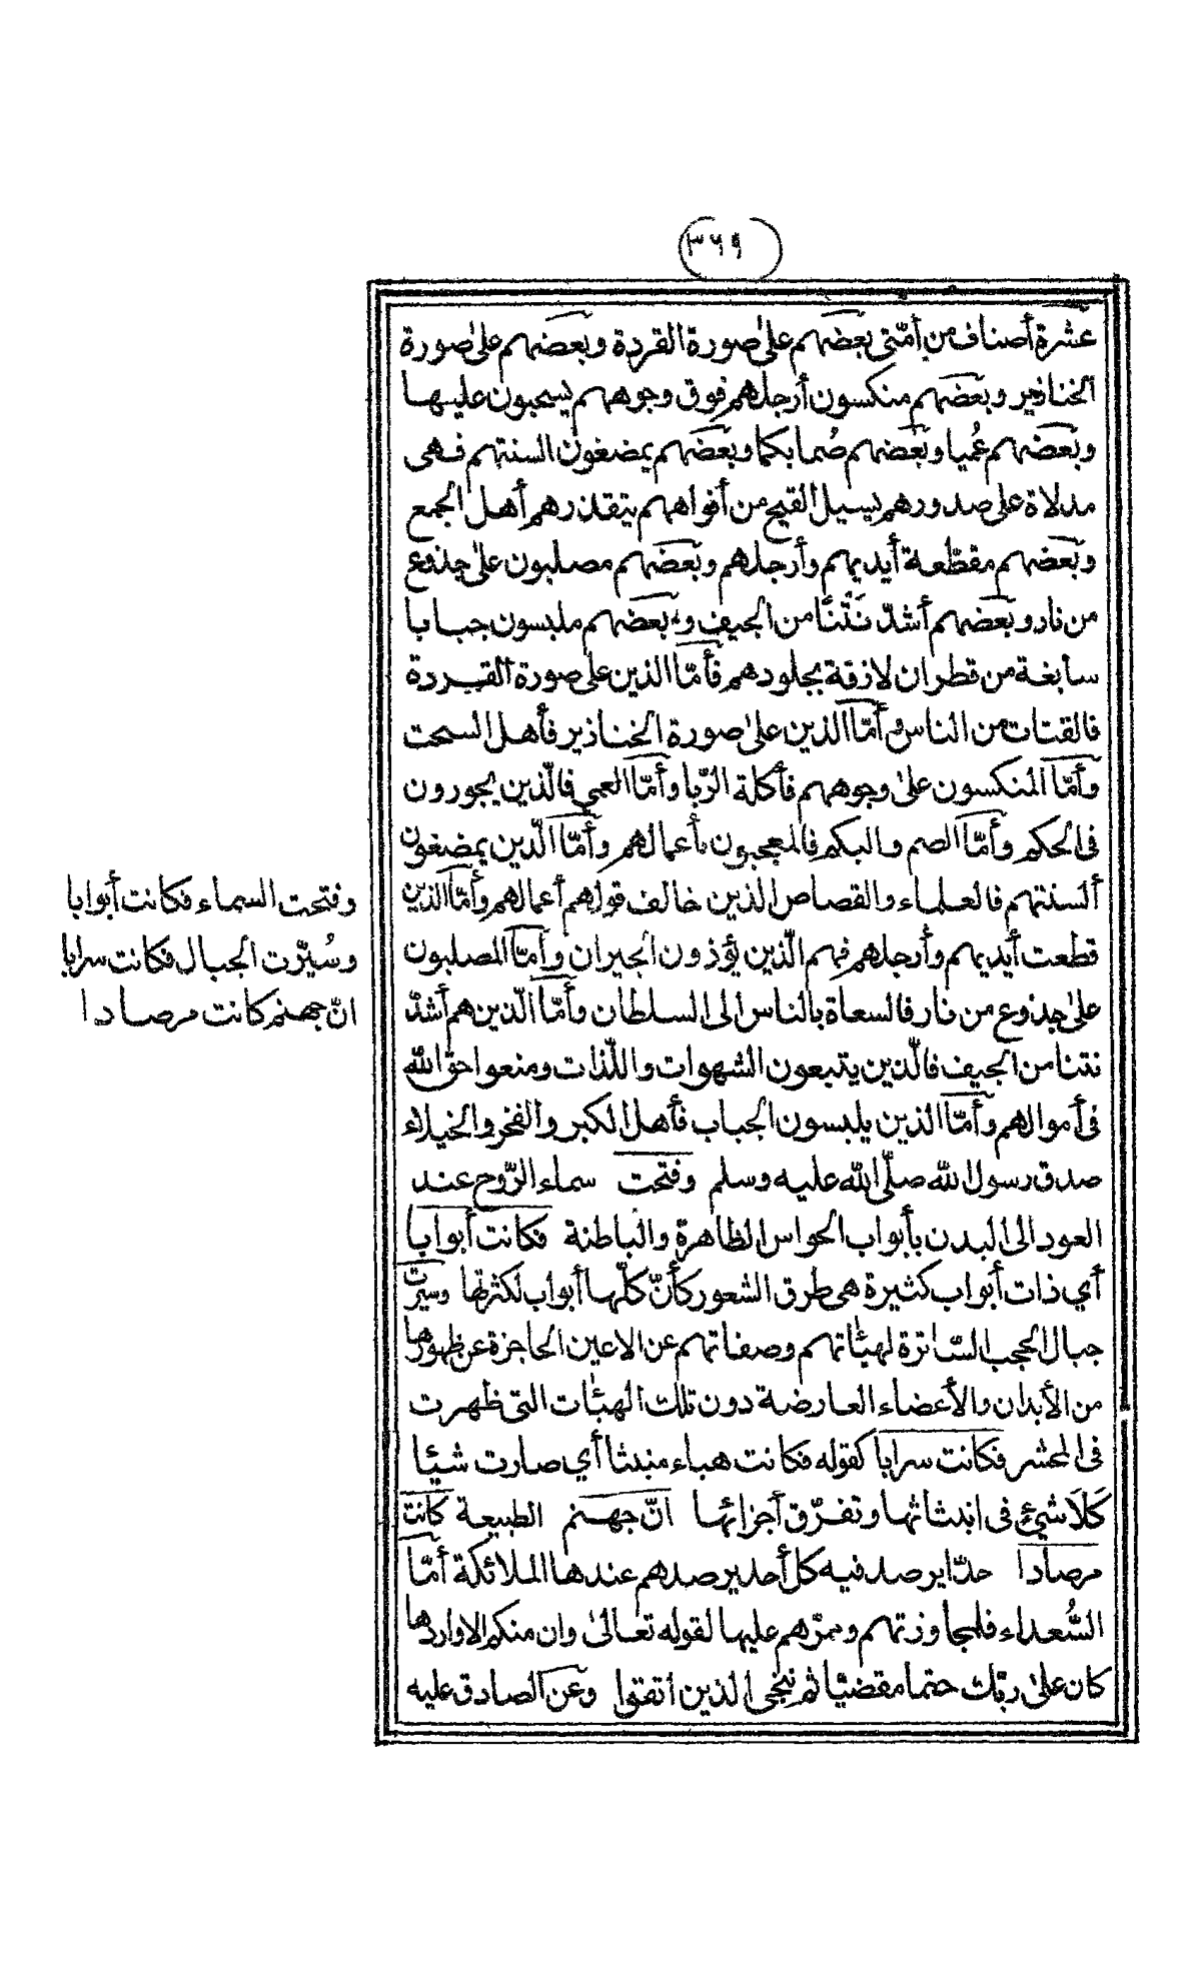 ٣٦٩
عشرة أصناف من أمّتى بعضهم على صورة القردة وبعضهم على صورة
الخنازير وبعضهم منكسون أرجلهم فوق وجوههم يسحبون عليها
وبعضهم عُميا وبعضهم صُما بكما وبعضهم يمضغون السنتهم فهى
مدلاة على صدورهم يسيل القيح من أفواههم يتقذرهم أهل الجمع
وبعضهم مقطّعة أيديهم وأرجلهم وبعضهم مصلبون على جذوع
من نار وبعضهم أشدّ نَتْنًا من الجيف وبعضهم ملبسون جبابا
سابغة من قطران لازقة بجلودهم فأمّا الذين على صورة القردة
فالقتات من الناس وأمّا الذين على صورة الخنازير فأهل السحت
وأمّا المنكسون على وجوههم فأكلة الرّبا وأمّا العمي فالّذين يجورون
فى الحكم وأمّا الصم والبكم فالمعجبون بأعمالهم وأمّا الّذين يمضغون
ألسنتهم فالعلماء والقصاص الذين خالف قولهم أعمالهم وأمّا الذين
قطعت أيديهم وأرجلهم فهم الّذين يؤذون الجيران وأمّا المصلبون
على جذوع من نار فالسعاة بالناس الى السلطان وأمّا الّذين هم أشدّ
نتنا من الجيف فالّذين يتبعون الشهوات واللّذات ومنعوا حق الله
فى أموالهم وأمّا الذين يلبسون الجباب فأهل الكبر والفخر والخيلاء
صدق رسول الله صلّى الله عليه وسلم وفتحت سماء الرّوح عند
العود الى البدن بأبواب الحواس الظاهرة والباطنة فكانت أبوابا
أي ذات أبواب كثيرة هى طرق الشعور كأنّ كلّها أبواب لكثرتها وسيّرت
جبال الحجب السّاترة لهيئاتهم وصفاتهم عن الاعين الحاجزة عن ظهورها
من الأبدان والأعضاء العارضة دون تلك الهيئات التى ظهرت
فى المحشر فكانت سرابا كقوله فكانت هباء منبثا أي صارت شيئا
كَلَا شيءٍ فى انبثاثها وتفرّق أجزائها انّ جهنم الطبيعة كانت
مرصادا حدّا يرصد فيه كل أحد يرصدهم عندها الملائكة أمّا
السُّعداء فلمجاوزتهم وممرّهم عليها لقوله تعالى وان منكم الا واردها
كان على ربّك حتما مقضيّا ثم ننجى الذين اتقوا وعن الصادق عليه
وفتحت السماء فكانت أبوابا
وسُيّرت الجبال فكانت سرابا
انّ جهنم كانت مرصادا